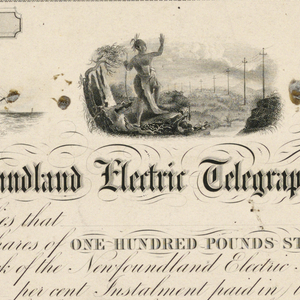 undland Electric Telegrap
ies that
hares of ONE HUNDRED POUNDS ST
k of the Newfoundland Electric
per cent Instalment paid in